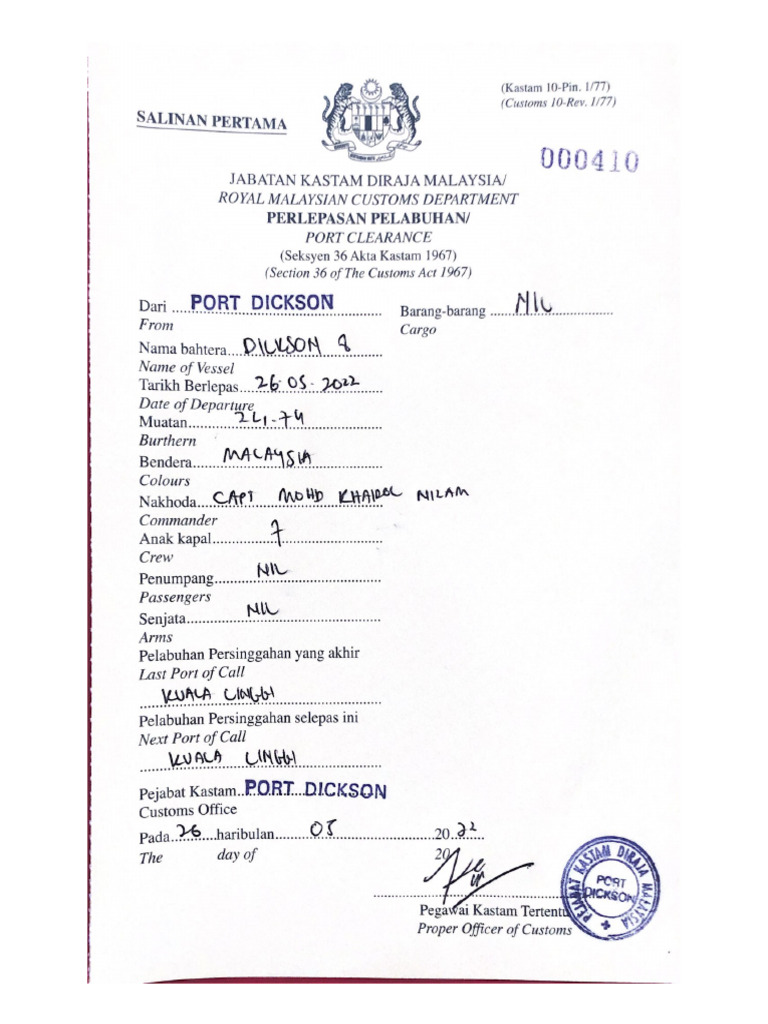 (Kastam 10-Pin. 1/77)
(Customs 10-Rev. 1/77)
SALINAN PERTAMA
000410
JABATAN KASTAM DIRAJA MALAYSIA/
ROYAL MALAYSIAN CUSTOMS DEPARTMENT
PERLEPASAN PELABUHAN/
PORT CLEARANCE
(Seksyen 36 Akta Kastam 1967)
(Section 36 of The Customs Act 1967)
Dari PORT DICKSON
From
Barang-barang NIL
Cargo
Nama bahtera DICKSON 8
Name of Vessel
Tarikh Berlepas 26.05.2022
Date of Departure
Muatan 241.74
Burthern
Bendera MALAYSIA
Colours
Nakhoda CAPT MOHD KHAIROL NIZAM
Commander
Anak kapal 7
Crew
Penumpang NIL
Passengers
Senjata NIL
Arms
Pelabuhan Persinggahan yang akhir
Last Port of Call
KUALA LINGGI
Pelabuhan Persinggahan selepas ini
Next Port of Call
KUALA LINGGI
Pejabat Kastam PORT DICKSON
Customs Office
Pada 26 haribulan 05 2022
The day of 20
Pegawai Kastam Tertentu
Proper Officer of Customs
PEJABAT KASTAM DIRAJA MALAYSIA
PORT
DICKSON